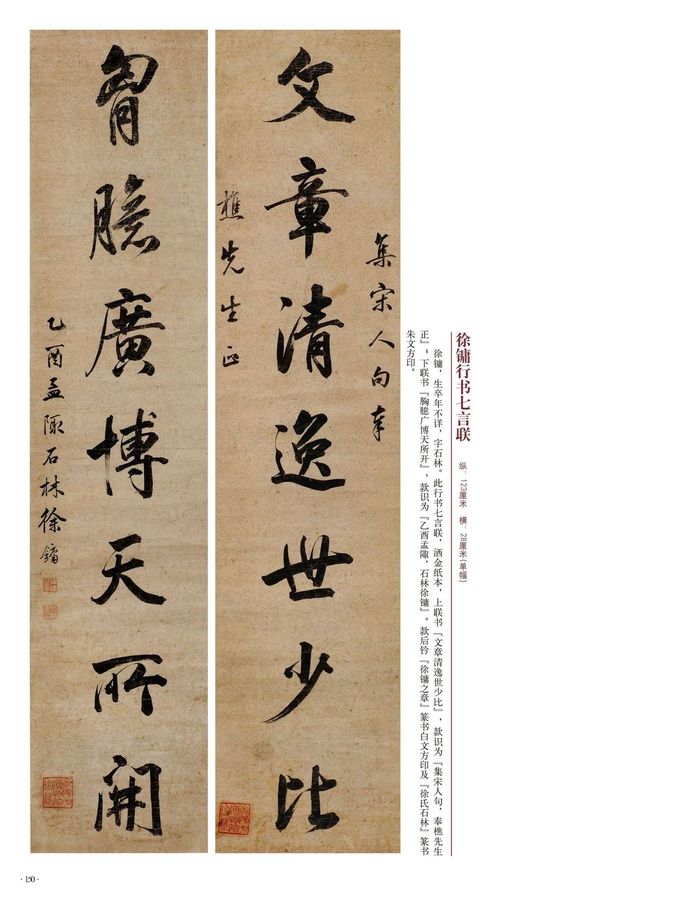 徐镛行书七言联
纵：123厘米 横：28厘米(单幅)
徐镛，生卒年不详，字石林。此行书七言联，洒金纸本，上联书『文章清逸世少比』，款识为『集宋人句，奉樵先生
正』；下联书『胸臆广博天所开』，款识为『乙酉孟陬，石林徐镛』。款后钤『徐镛之章』篆书白文方印及『徐氏石林』篆书
朱文方印。
集宋人句奉
文章清逸世少比
樵先生正
胷臆廣博天所開
乙酉孟陬石林徐鏞
·150·